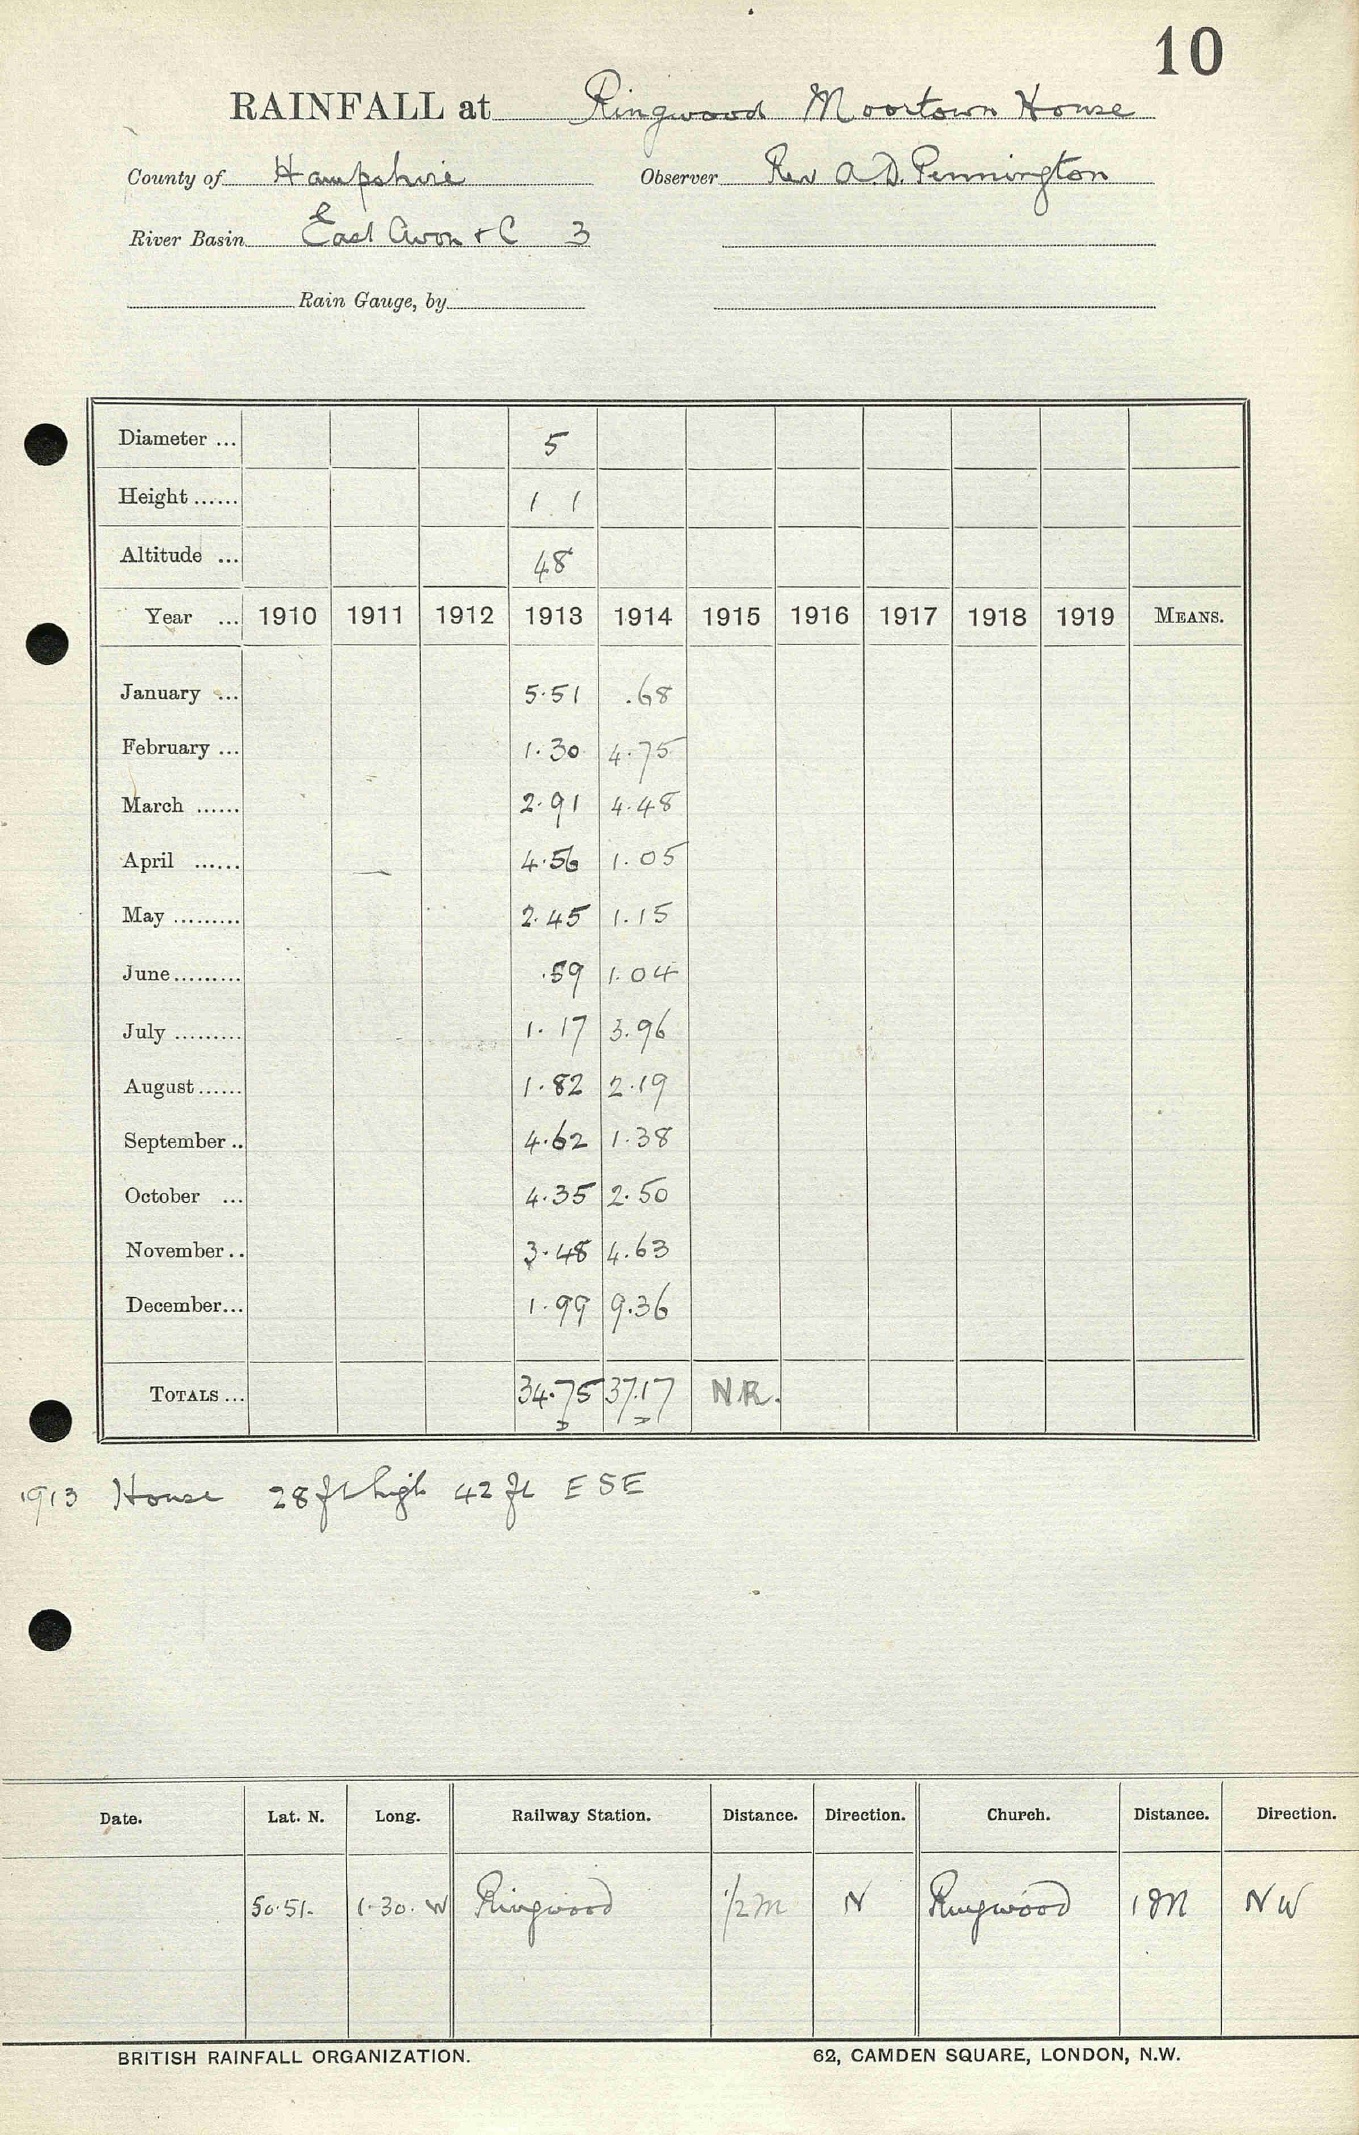 10
RAINFALL at Ringwood Moortown House
County of Hampshire Observer Rev A.D. Pennington
River Basin East Avon + C 3
Rain Gauge, by
Diameter ... 5
Height ...... 1 1
Altitude ... 48
Year ... 1910 1911 1912 1913 1914 1915 1916 1917 1918 1919 MEANS.
January ... 5.51 .68
February ... 1.30 4.75
March ...... 2.91 4.48
April ...... 4.56 1.05
May ......... 2.45 1.15
June ......... .59 1.04
July ......... 1.17 3.96
August ...... 1.82 2.19
September .. 4.62 1.38
October ... 4.35 2.50
November .. 3.48 4.63
December... 1.99 9.36
TOTALS ... 34.75 37.17 N.R.
D D
1913 House 28 ft high 42 ft E S E
Date. Lat. N. Long. Railway Station. Distance. Direction. Church. Distance. Direction.
50.51. 1.30. W Ringwood 1/2 M N Ringwood 1 M N W
BRITISH RAINFALL ORGANIZATION. 62, CAMDEN SQUARE, LONDON, N.W.